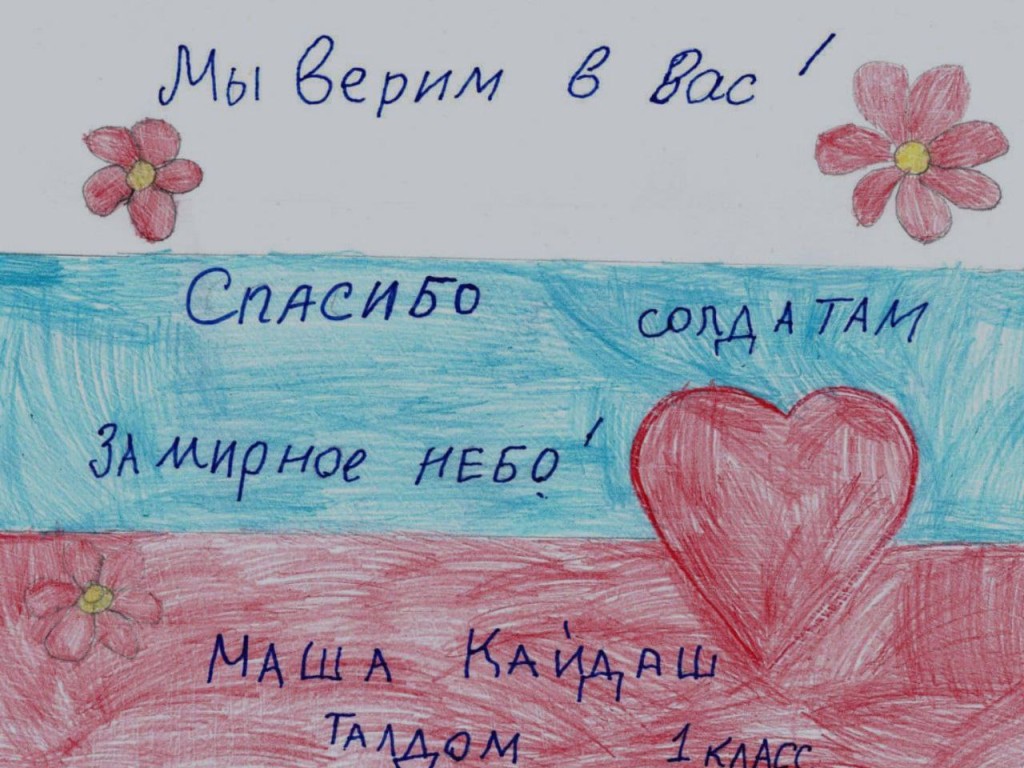 Мы верим в вас!
Спасибо солдатам
за мирное небо!
Маша Кайдаш
Талдом 1 класс